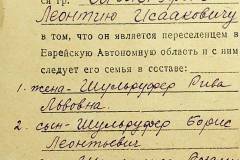 гр.
Леонтию Исааковичу
в том, что он является переселенцем в
Еврейскую Автономную область и с ним
следует его семья в составе:
1. жена - Шульруфер Рива
Львовна.
2. сын - Шульруфер Борис
Леонтьевич